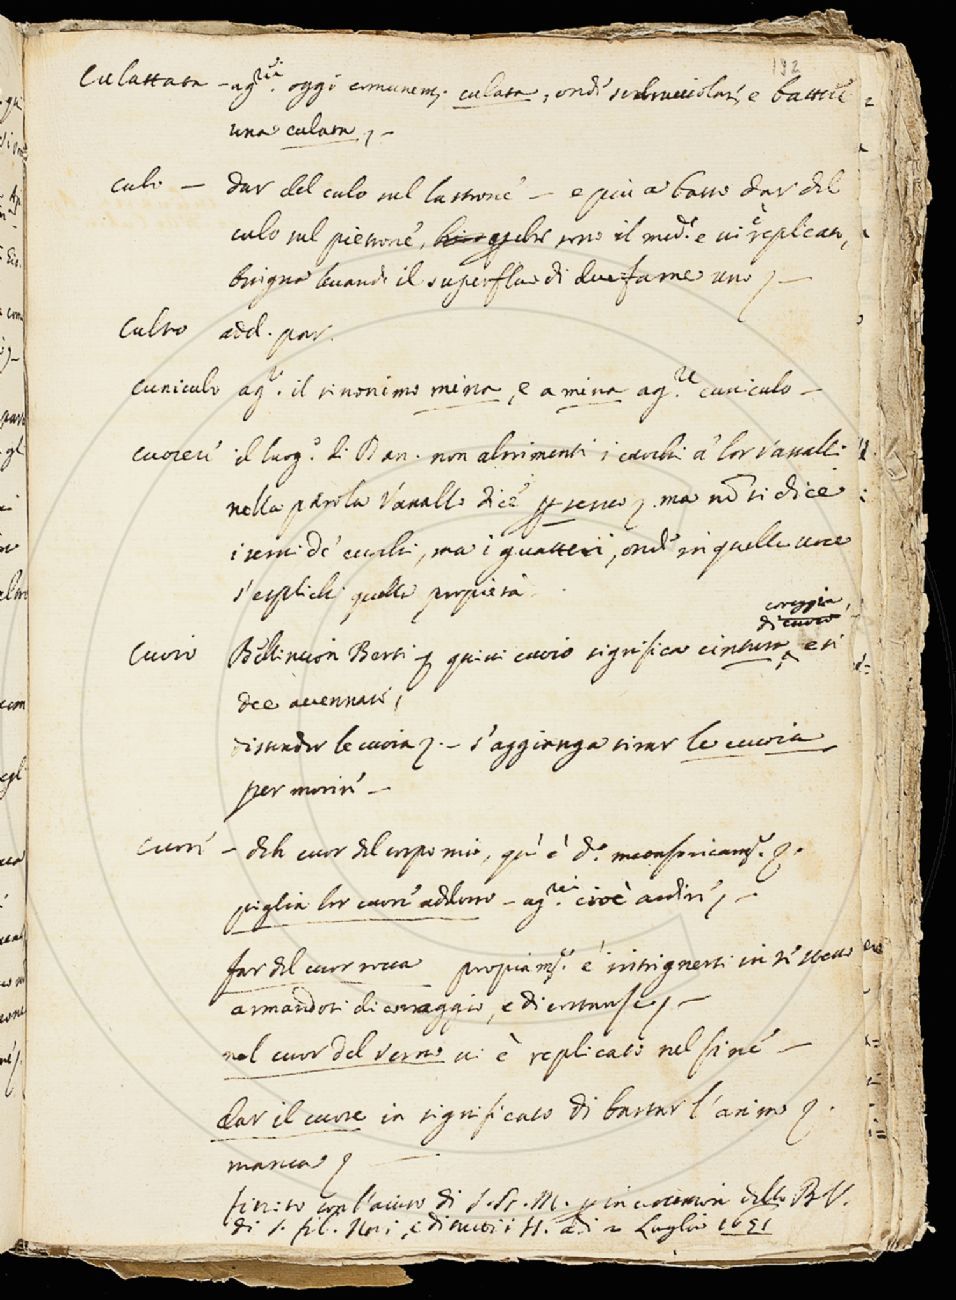 192
Culattata - ag.re oggi comunem. culata, onde sdrucciolare, e battere
una culata, -
culo - dar del culo sul lastrone - e più a basso dar del
culo sul pietrone, sono il med.o e vi è replicato,
bisigna levando il superfluo di due farne uno -
Culto add. par.
cuniculo ag.e il sinonimo mina, e a mina ag.re cuniculo -
cuocere il luog.o di Dan. non altrimenti i cuochi a' lor vassalli
nella parola Vassallo dice ma non si dice
i servi de' cuochi, ma i guatteri, onde in quella voce
s'esplichi quella propietà
coreggia
di cuoio
Cuoio Bellincion Berti quivi cuoio significa cintura e si
dee accennare,
distender le cuoia - s'aggiunga tirar le cuoia
per morire -
Cuore - deh cuor del corpo mio, qui è d.o
piglia lor cuore addosso - ag. cioè ardire, -
far del cuor rocca propiam.e è instrignersi in sé stesso
armandosi di coraggio, e di
nel cuor del verno vi è replicato nel fine -
dar il cuore in significato di bastar l'animo
manca -
finito con l'aiuto di della B.V.
di S. Fil. Neri, e di tutti i S. adi 2 Luglio 1691